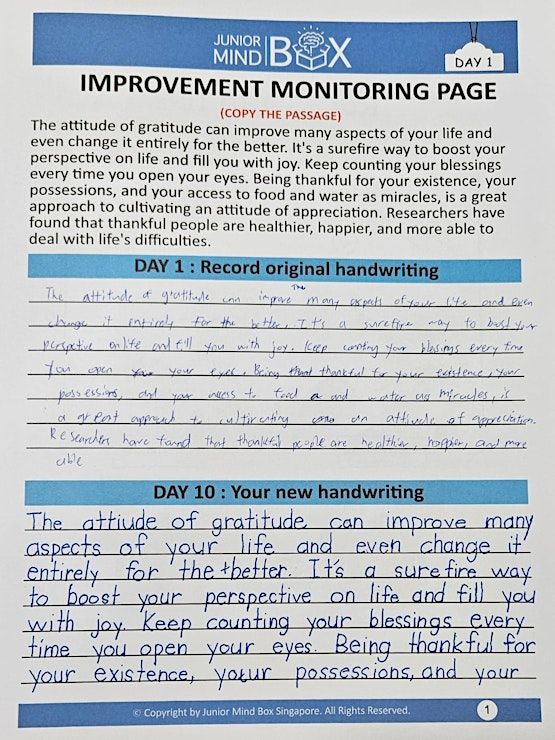 JUNIOR
MIND BOX
DAY 1
IMPROVEMENT MONITORING PAGE
(COPY THE PASSAGE)
The attitude of gratitude can improve many aspects of your life and
even change it entirely for the better. It's a surefire way to boost your
perspective on life and fill you with joy. Keep counting your blessings
every time you open your eyes. Being thankful for your existence, your
possessions, and your access to food and water as miracles, is a great
approach to cultivating an attitude of appreciation. Researchers have
found that thankful people are healthier, happier, and more able to
deal with life's difficulties.
DAY 1 : Record original handwriting
The attitude of gratitude can improve The many aspects of your life and even
change it entirely for the better, It's a surefire way to bust your
perspctive on life and fill you with joy. Keep conting your blessings every time
you open your eyes. Being thankful for your existence, your
possessions, and your access to food and water as miracles, is
a great approach to an attitude of appreciation.
Researchers have found that thankful people are healthier, happier, and more
able
DAY 10 : Your new handwriting
The attiude of gratitude can improve many
aspects of your life and even change it
entirely for the better. It's a surefire way
to boost your perspective on life and fill you
with joy. Keep counting your blessings every
time you open your eyes. Being thankful for
your existence, your possessions, and your
© Copyright by Junior Mind Box Singapore. All Rights Reserved.
1